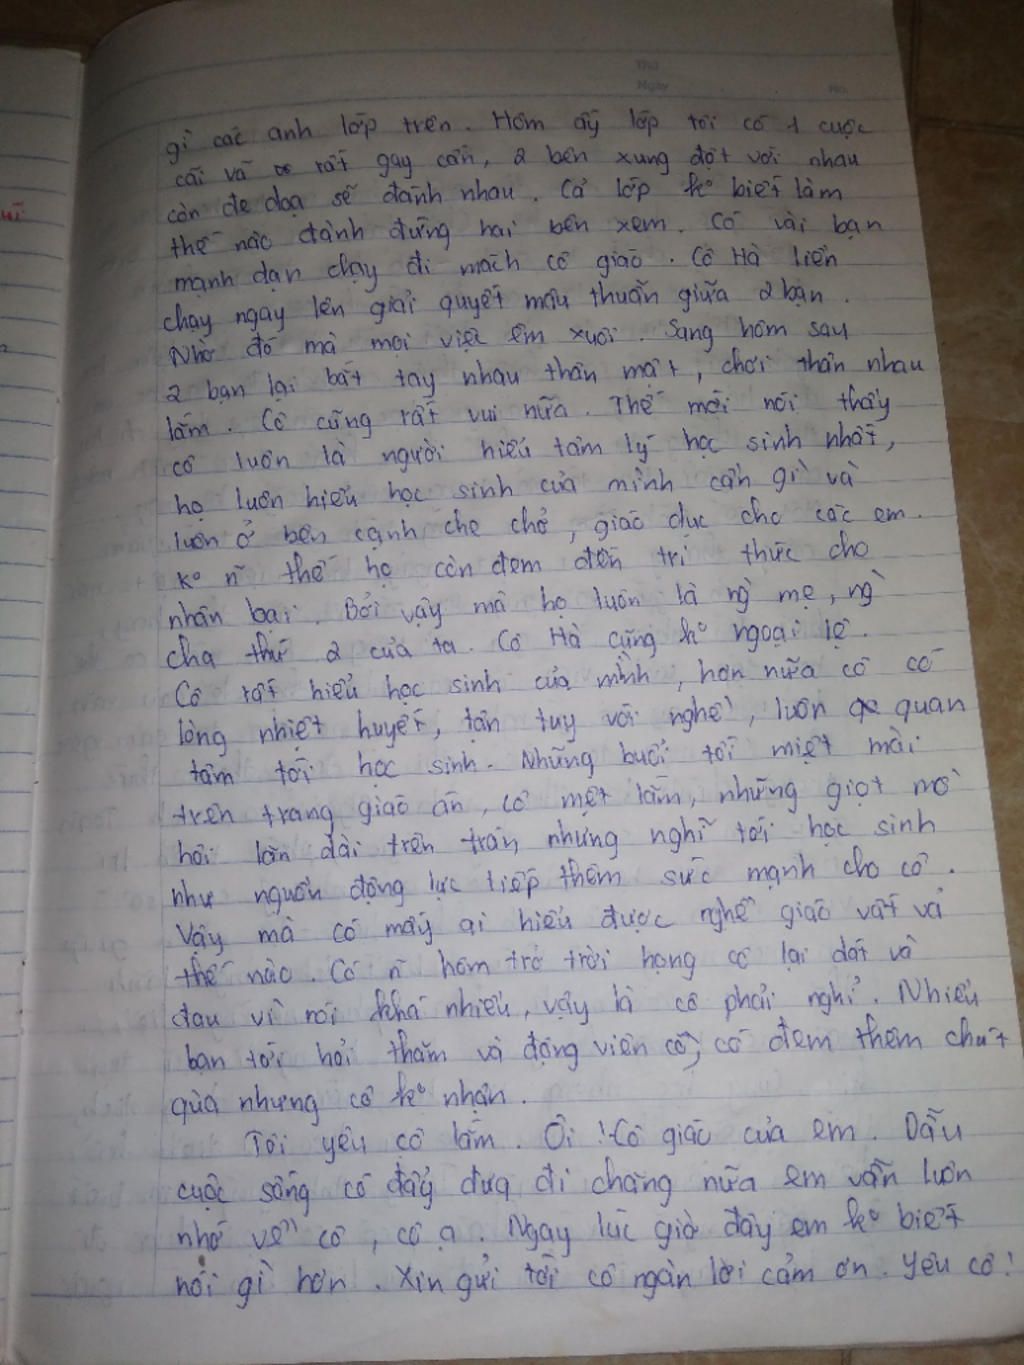 Thứ
Ngày
No.
gì các anh lớp trên. Hôm ấy lớp tôi có 1 cuộc
cãi vã rất gay cấn, 2 bên xung đột với nhau
còn đe doạ sẽ đánh nhau. Cả lớp ko biết làm
thế nào đành đứng hai bên xem. Có vài bạn
mạnh dạn chạy đi mách cô giáo. Cô Hà liền
chạy ngay lên giải quyết mâu thuẫn giữa 2 bạn.
Nhờ đó mà mọi việc êm xuôi. Sang hôm sau
2 bạn lại bắt tay nhau thân mật, chơi thân nhau
lắm. Cô cũng rất vui nữa. Thế mới nói thầy
cô luôn là người hiểu tâm lý học sinh nhất,
họ luôn hiểu học sinh của mình cần gì và
luôn ở bên cạnh che chở, giáo dục cho các em.
Ko n~ thế họ còn đem đến tri thức cho
nhân loại. Bởi vậy mà họ luôn là ng` mẹ, ng`
cha thứ 2 của ta. Cô Hà cũng ko ngoại lệ.
Cô rất hiểu học sinh của mình, hơn nữa cô có
lòng nhiệt huyết, tận tuỵ với nghề, luôn quan
tâm tới học sinh. Những buổi tối miệt mài
trên trang giáo án, cô mệt lắm, những giọt mồ
hôi lăn dài trên trán, nhưng nghĩ tới học sinh
như nguồn động lực tiếp thêm sức mạnh cho cô.
Vậy mà có mấy ai hiểu được nghề giáo vất vả
thế nào. Có n~ hôm trở trời họng cô lại dát và
đau vì nói khá nhiều, vậy là cô phải nghỉ. Nhiều
bạn tới hỏi thăm và động viên cô, có đem thêm chút
quà nhưng cô ko nhận.
Tôi yêu cô lắm. Ôi ! Cô giáo của em. Dẫu
cuộc sống có đẩy đưa đi chăng nữa em vẫn luôn
nhớ về cô, cô ạ. Ngay lúc giờ đây em ko biết
nói gì hơn. Xin gửi tới cô ngàn lời cảm ơn. Yêu cô!